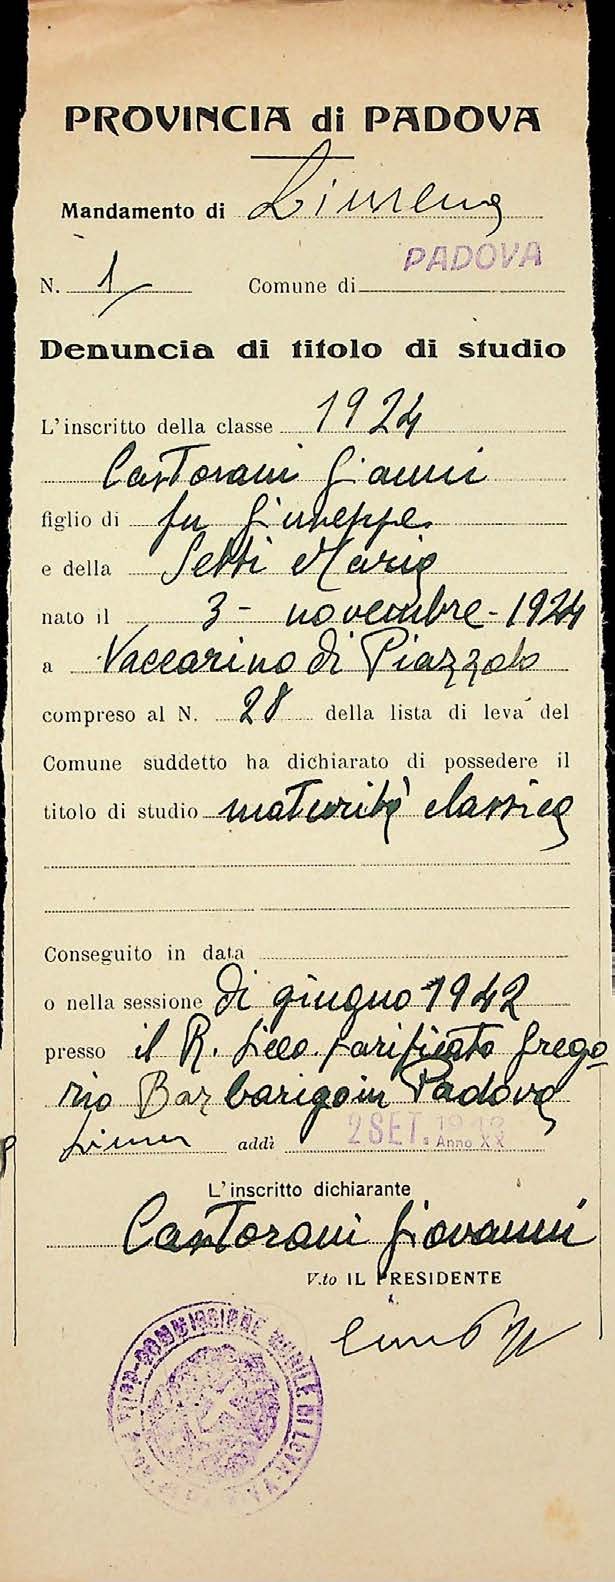 PROVINCIA di PADOVA
Mandamento di Limena
N. 1 Comune di PADOVA
Denuncia di titolo di studio
L'inscritto della classe 1924
Castorani Gianni
figlio di fu Giuseppe
e della Setti Maria
nato il 3 - novembre - 1924
a Vaccarino di Piazzola
compreso al N. 28 della lista di leva del
Comune suddetto ha dichiarato di possedere il
titolo di studio maturità classica
Conseguito in data
o nella sessione di giugno 1942
presso il R. Liceo parificato Grego
rio Barbarigo in Padova
addì 2 SET. 1942 Anno XX
L'inscritto dichiarante
Castorani Giovanni
V.to IL PRESIDENTE
COMMISSIONE MOBILE DI LEVA